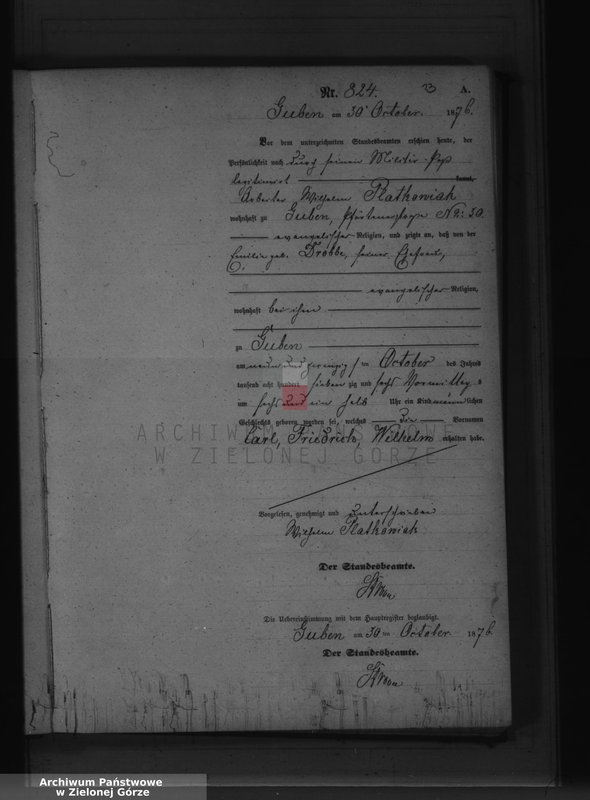 Nr. 824. B A.
Guben am 30' October 1876.
Vor dem unterzeichneten Standesbeamten erschien heute, der
Persönlichkeit nach durch seinen Militär Paß
legitimirt kannt,
Arbeiter Wilhelm Platkowiak
wohnhaft zu Guben, No: 30.
evangelischer Religion, und zeigte an, daß von der
Emilie geb. Drobbe, seiner Ehefrau,
evangelischer Religion,
wohnhaft bei ihm
zu Guben
am neun und zwanzig ten October des Jahres
tausend acht hundert sieben zig und sechs Vormittag s
um sechs und ein halb Uhr ein Kind männlichen
Geschlechts geboren worden sei, welches die Vornamen
Carl, Friedrich, Wilhelm erhalten habe.
ARCHIWUM PAŃSTWOWE
W ZIELONEJ GÓRZE
Vorgelesen, genehmigt und unterschrieben
Wilhelm Platkowiak
Der Standesbeamte.
Die Uebereinstimmung mit dem Hauptregister beglaubigt.
Guben am 30 ten October 1876.
Der Standesbeamte.
Archiwum Państwowe
w Zielonej Górze